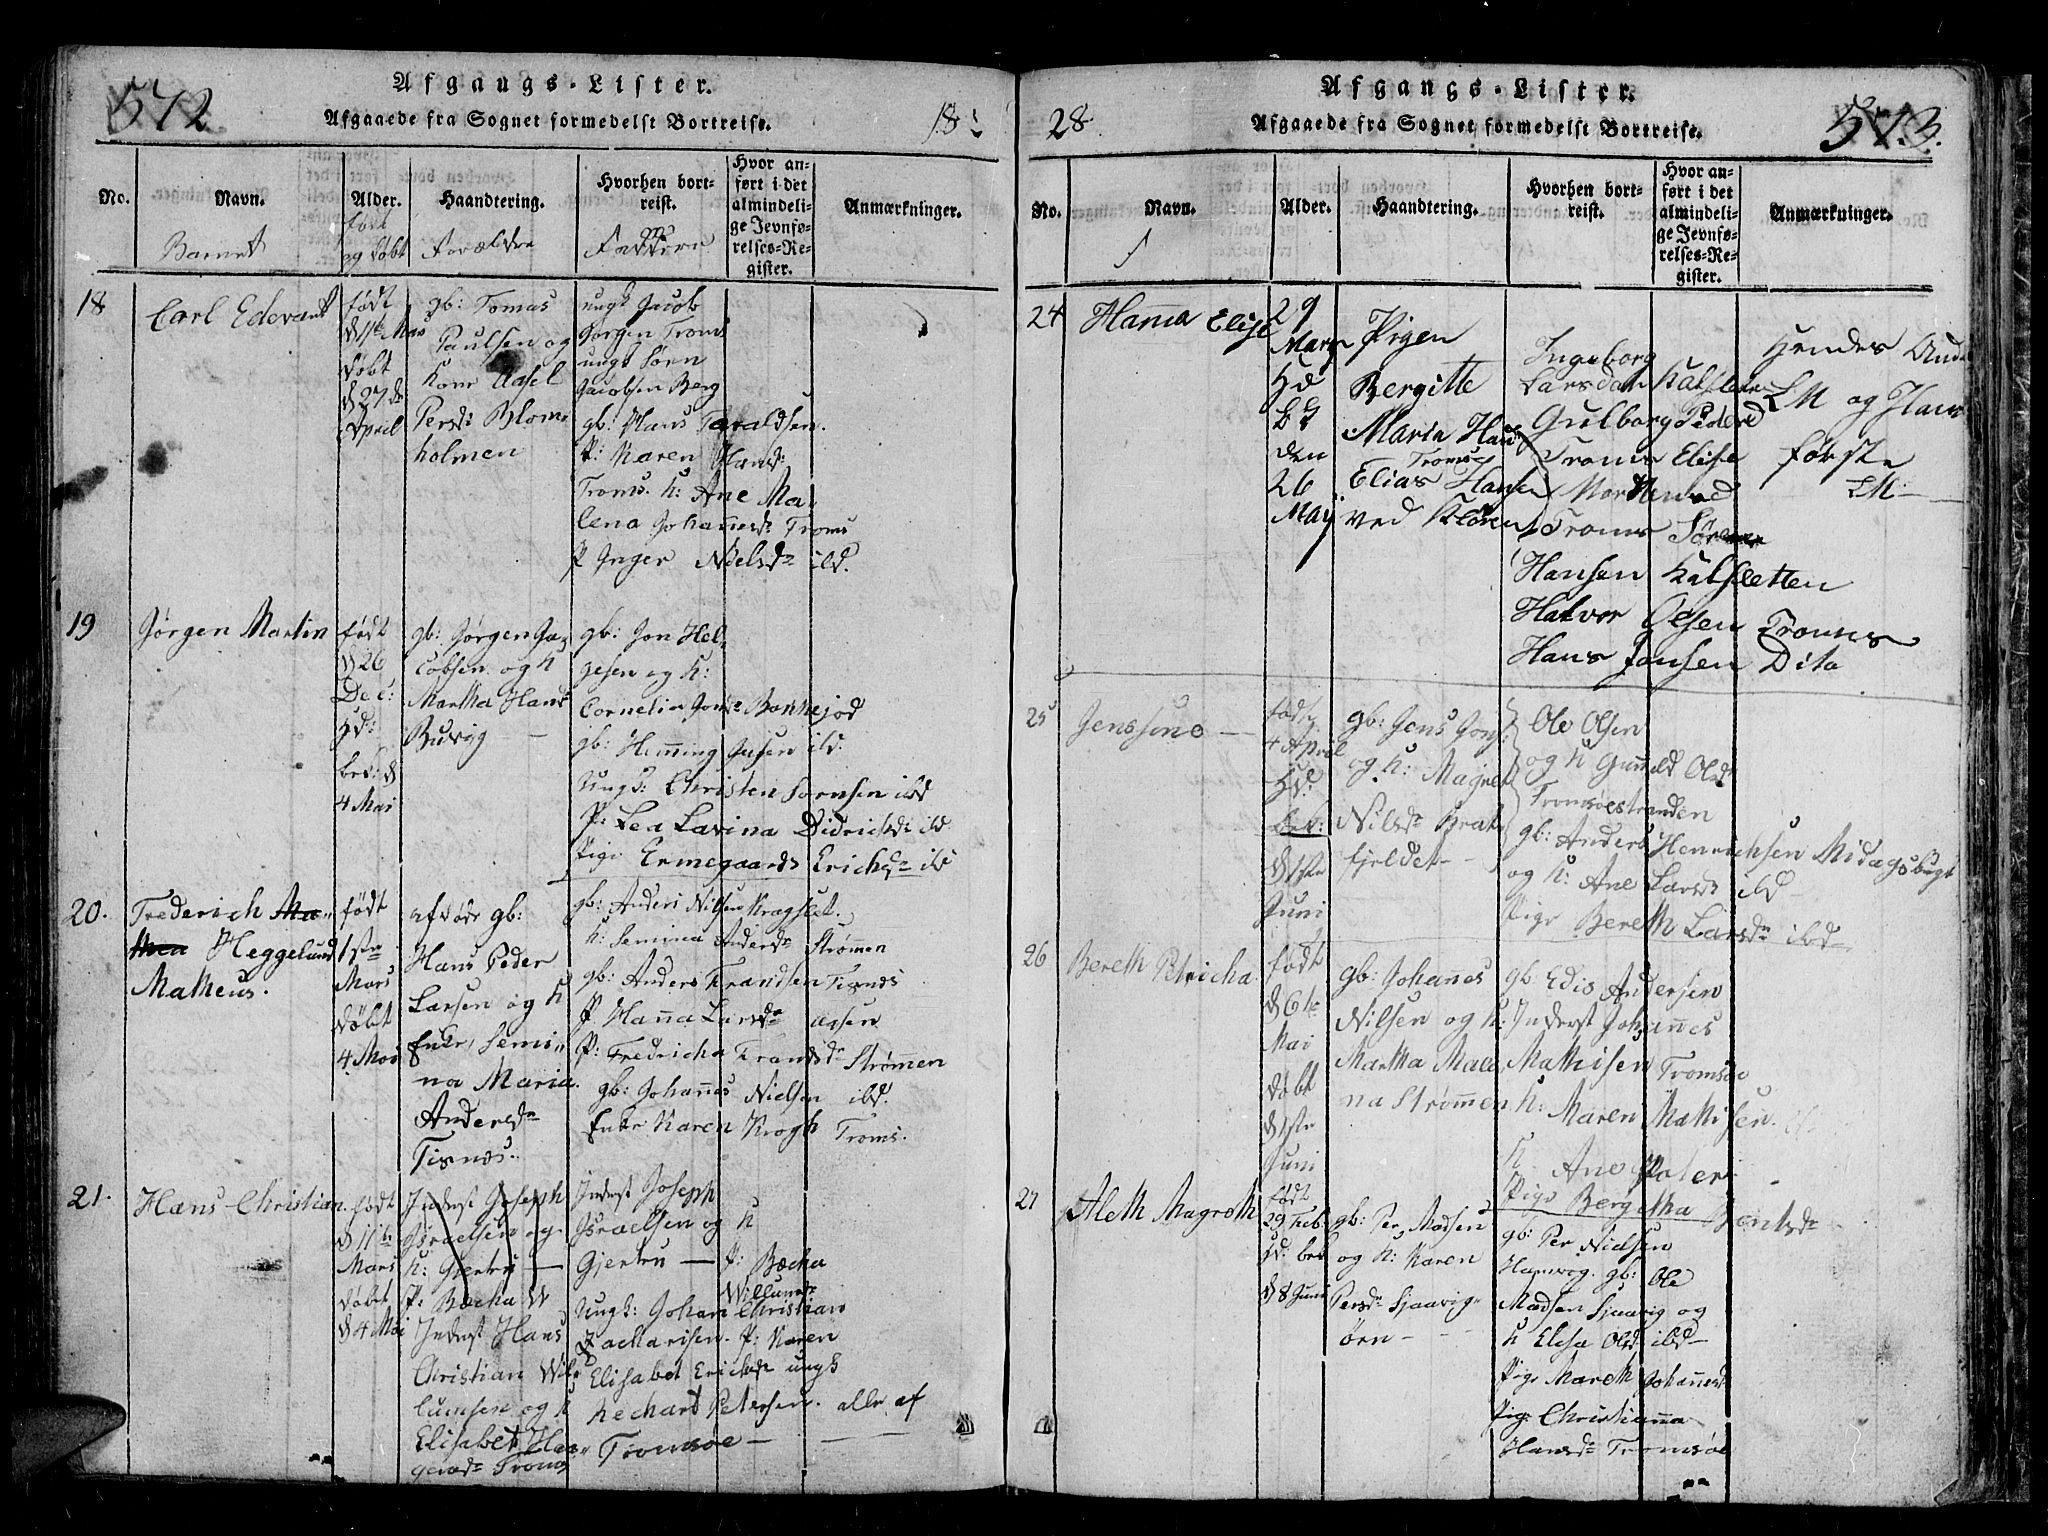 572
Afgangs-Lister.
Afgaaede fra Sognet formedelst Bortreise.
18
No.
Navn.
Alder.
Haandtering.
Hvorhen bort-
reist.
Hvor an-
ført i det
almindeli-
ge Jevnfø-
relses-Re-
gister.
Anmærkninger.
Barnet
født
og døbt
Forældre
Faddere
18
Carl Edevart
født
d 1ste Mars
døbt
d 27de
April
gb: Tomas
Paulsen og
Kone Aasel
Persd: Blom
holmen
ungk Jacob
Jørgen Troms
ungk Sørn
Jacobsen Berg
gb: Hans Taraldsen.
P: Karen Hansd:
Troms. k: Ane Ma
lena Johannesd: Troms
P Inger Nielsdr ibd.
19
Jørgen Martin
født
d 26
Dec:
Hd:
bek: d
4 Mai
gb: Jørgen Ja-
cobsen og k
Martha Hansd
Buvig
gb: Jon Hel-
gesen og k:
Cornelia Jonsdr Bonhejod
gb: Hemming Jusen ibd:
Ungk: Christen Sørnsen ibd
P: Lea Lavina Didrichsd: ibd
Pige Ermegaards Erichsdr ibd
20.
Frederich Ma-
thea Heggelund
Matheus.
født
1ste
Mars
døbt
4 Mai
afdøde gb:
Hans Peder
Larsen og k
Enke, Semi-
na Maria
Andersdr
Tisnæs.
gb: Anders Nilsen Kragslet.
k: Semina Andersdr Strømmen
gb: Anders Frandsen Tisnæs
P Hanna Larsdr assen
P: Fredricha Frandsdr Strømmen
gb: Johannes Nielsen ibd.
Enke Karen Krogh Troms.
21.
Hans Christian
født
d 11te
Mars
døbt
d 4 Mai
Inderst Joseph
Israelsen og
k: Gjertru
P: Bæcha W
Inderst Hans
Christian Wil-
lumsen og k
Elisabet Han-
gerædr Troms
Inderst Joseph
Israelsen og k
Gjertru — P: Bæcha
Willumsdr
Ungk: Johan Christian
Zachariesen. P: Karen
Elisabet Erichsdr ungk
Rechard Petersen. alle af
Tromsøe
28.
Afgangs-Lister.
Afgaaede fra Sognet formedelst Bortreise.
573.
No.
Navn.
Alder.
Haandtering.
Hvorhen bort-
reist.
Hvor an-
ført i det
almindeli-
ge Jevnfø-
relses-Re-
gister.
Anmærkninger.
24
Hanna Elise
29
Mars
Hd
Bk
den
26
Maij
Pigen
Bergitte
Maria Hans
Troms
Elias Hansen
ved Kloren
Ingeborg
Larsdatt Kalsletten
Gulborg Pedersd
Troms Elise
Mortensd
Troms Søren
Hansen Kalsletten
Halvor Olsen Troms
Hans Jonsen Dito
Hendes Andet
LM og Hans
første
LM
25
Jenssine
født
4 April
Hd:
bek:
d 1ste
Juni
gb: Jens Jons:
og k: Magret
Nilsdr Brat
fjeldet
Ole Olsen
og k Gunnild Olsd
Tromsøestranden
gb: Anders Henrichsen Midagsbugt
og k: Ane Larsd: ibd
Pige Bereth Larsdr ibd
26
Bereth Petricha
født
d 6te
Mai
døbt
d 1ste
Juni
gb: Johannes
Nilsen og k:
Martha Male
na Strømmen
gb Edis Andersen
Inderst Johannes
Mathisen Tromsøe
k: Maren Mathisen.
k Ane
Pige Bergetha Bentsdr
27
Aleth Magreth
født
29 Feb.
Hd: bek
d 8 Juni
gb: Per Madsen
og k: Karen
Persdr Sjaavig-
ørn
gb: Per Nielsen
Hamvog. gb: Ole
Madsen Sjaavig og
k Elisa Olsd ibd
Pige Mareth Johannesd
Pig: Christianna
Hansdr Tromsøe